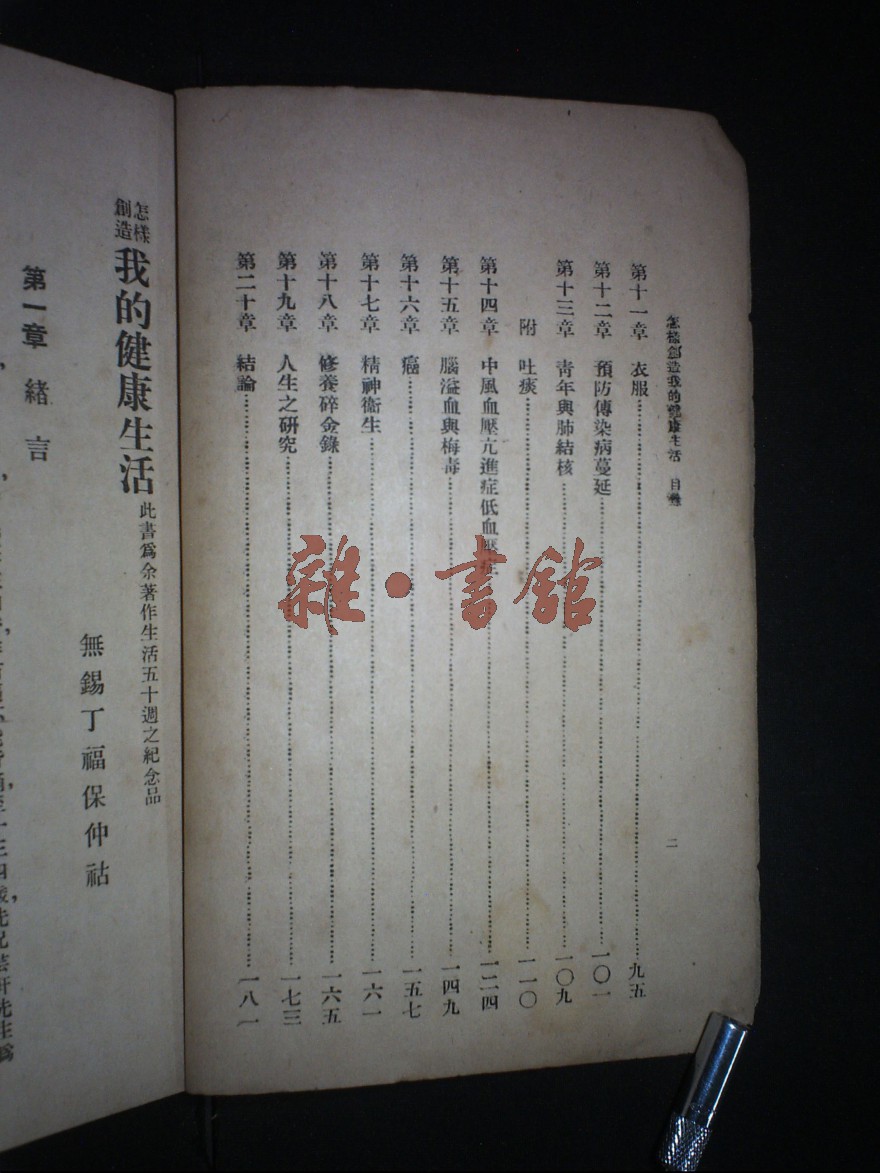 怎樣創造我的健康生活 目錄
二
第十一章 衣服……九五
第十二章 預防傳染病蔓延……一〇一
第十三章 青年與肺結核……一〇九
附 吐痰……一一〇
第十四章 中風血壓亢進症低血壓症……一二四
第十五章 腦溢血與梅毒……一四九
第十六章 癌……一五七
第十七章 精神衛生……一六一
第十八章 修養碎金錄……一六五
第十九章 人生之研究……一七三
第二十章 結論……一八一
雜·書館
怎樣創造我的健康生活 此書爲余著作生活五十週之紀念品
無錫丁福保仲祜
第一章 緒言